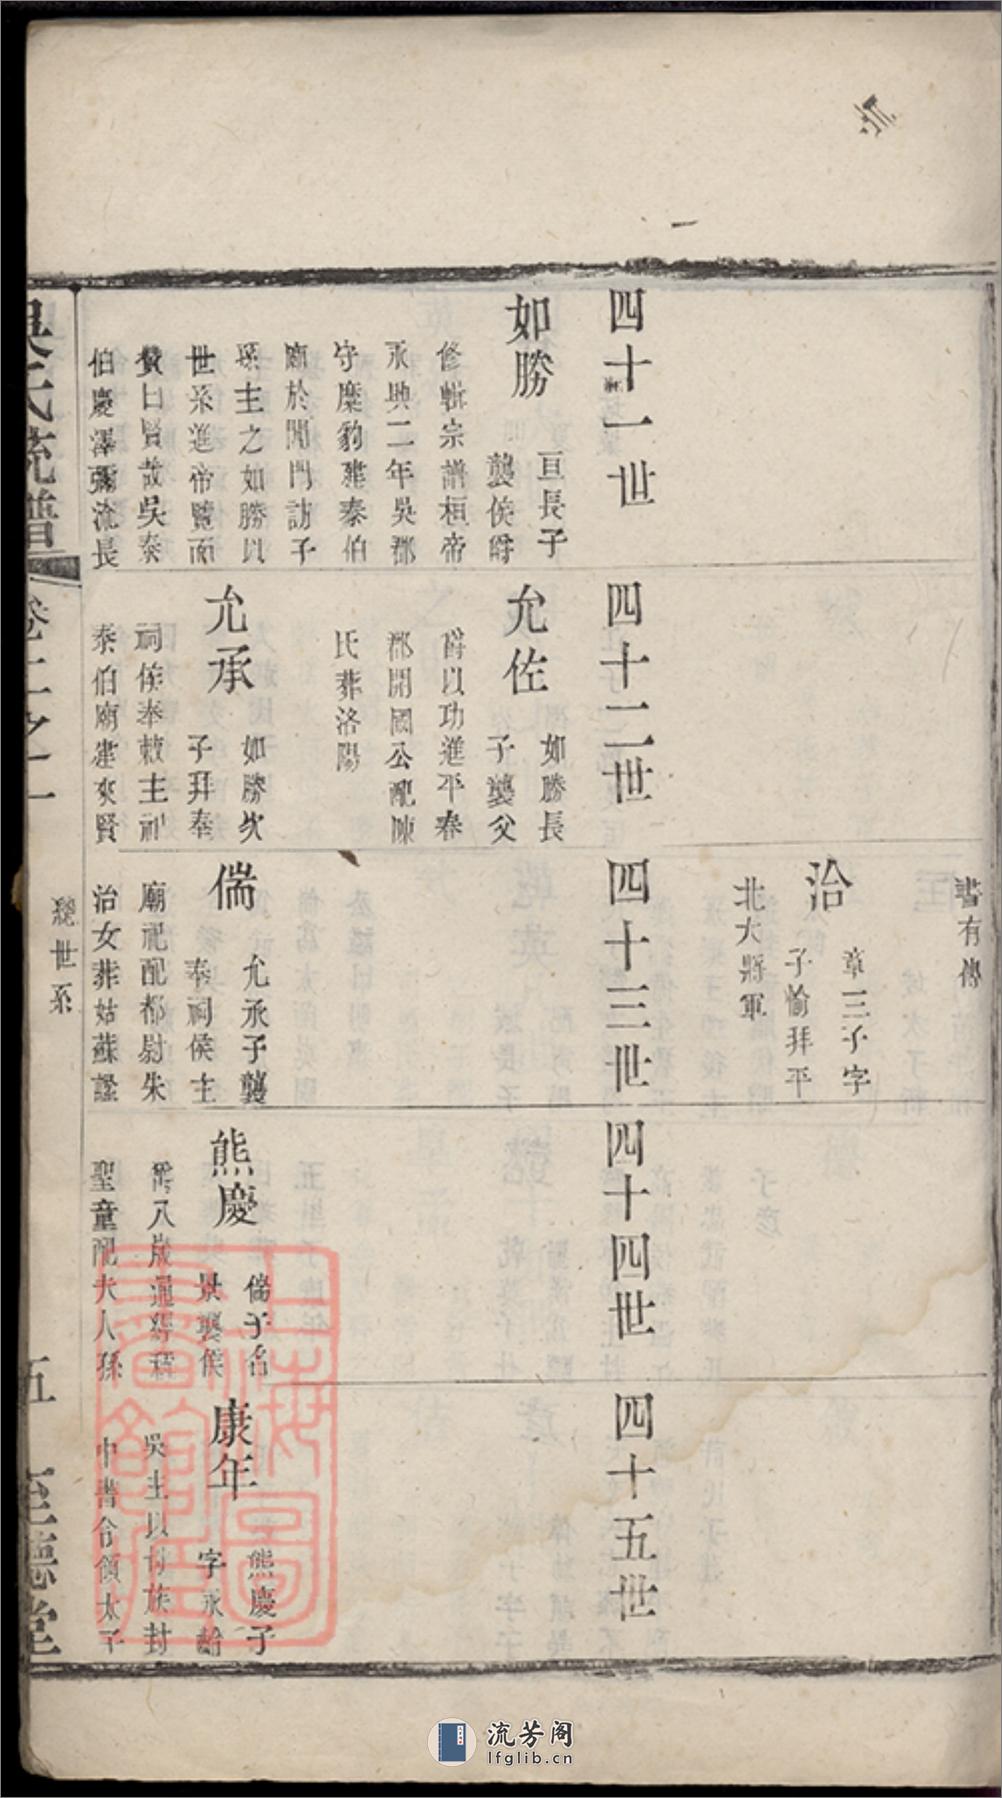 書有傳
治
章三子字
子愉拜平
北大將軍
四十一世
四十二世
四十三世
四十四世
四十五世
如勝
亘長子
襲侯爵
修輯宗譜桓帝
永興二年吳郡
守糜豹建泰伯
廟於閶門訪子
孫主之如勝以
世系進帝覽而
贊曰賢哉吳泰
伯慶澤彌流長
允佐
如勝長
子襲父
爵以功進平春
郡開國公配陳
氏葬洛陽
允承
如勝次
子拜奉
祠侯奉敕主祀
泰伯廟建夾賢
偳
允承子襲
奉祠侯主
廟祀配都尉朱
治女葬姑蘇
熊慶
偳子名
景襲侯
爵八歲通經稱
聖童配夫人孫
康年
熊慶子
字永齡
吳主以母族封
中書令領太子
吳氏統譜
卷二之一
總世系
五
至德堂
上海圖書館藏
流芳阁
lfglib.cn